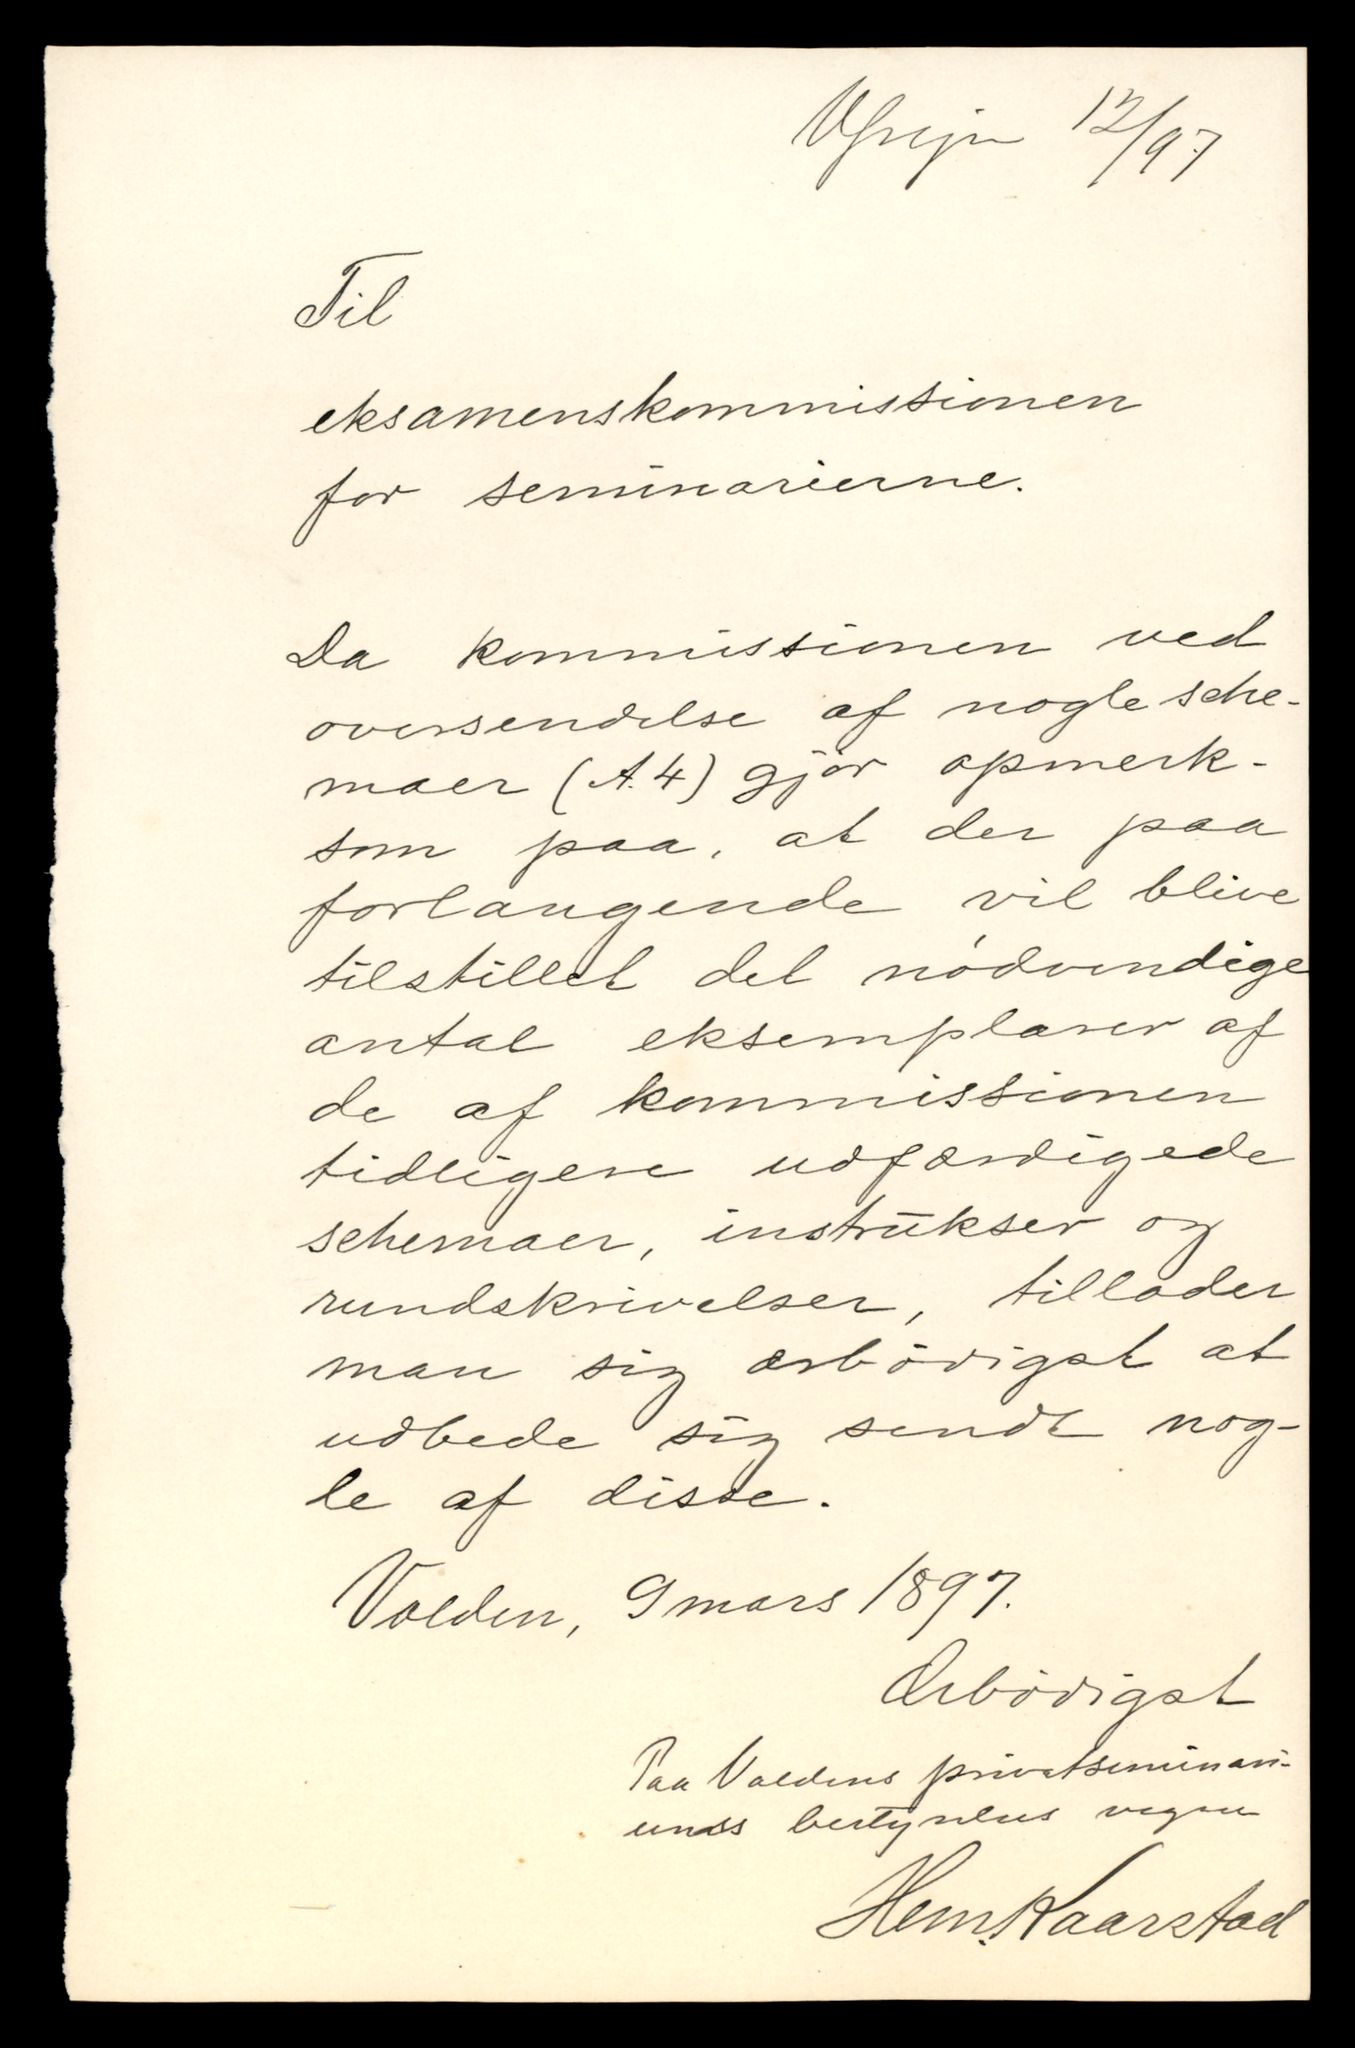 12/97
Til
eksamenskommissionen
for seminarierne.
Da kommissionen ved
oversendelse af nogle sche-
maer (A.4) gjör opmerk-
som paa, at der paa
forlangende vil blive
tilstillet det nödvendige
antal eksemplarer af
de af kommissionen
tidligere udfærdigede
schemaer, instrukser og
rundskrivelser, tillader
man sig ærbödigst at
udbede sig sendt nog-
le af disse.
Volden, 9 mars 1897.
Ærbödigst
Paa Voldens privatseminari-
ums bestyrelses vegne
Henr. Kaarstad